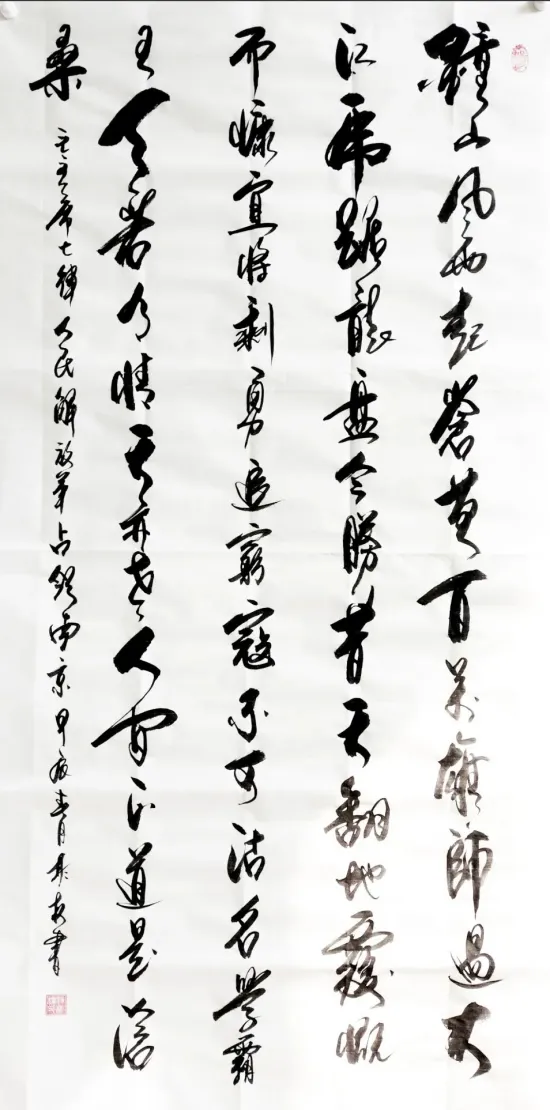 鍾山風雨起蒼黃百萬雄師過大
江虎踞龍盤今勝昔天翻地覆慨
而慷宜將剩勇追窮寇不可沽名學霸
王天若有情天亦老人間正道是滄
桑 毛主席七律人民解放軍占領南京 甲辰春月 書